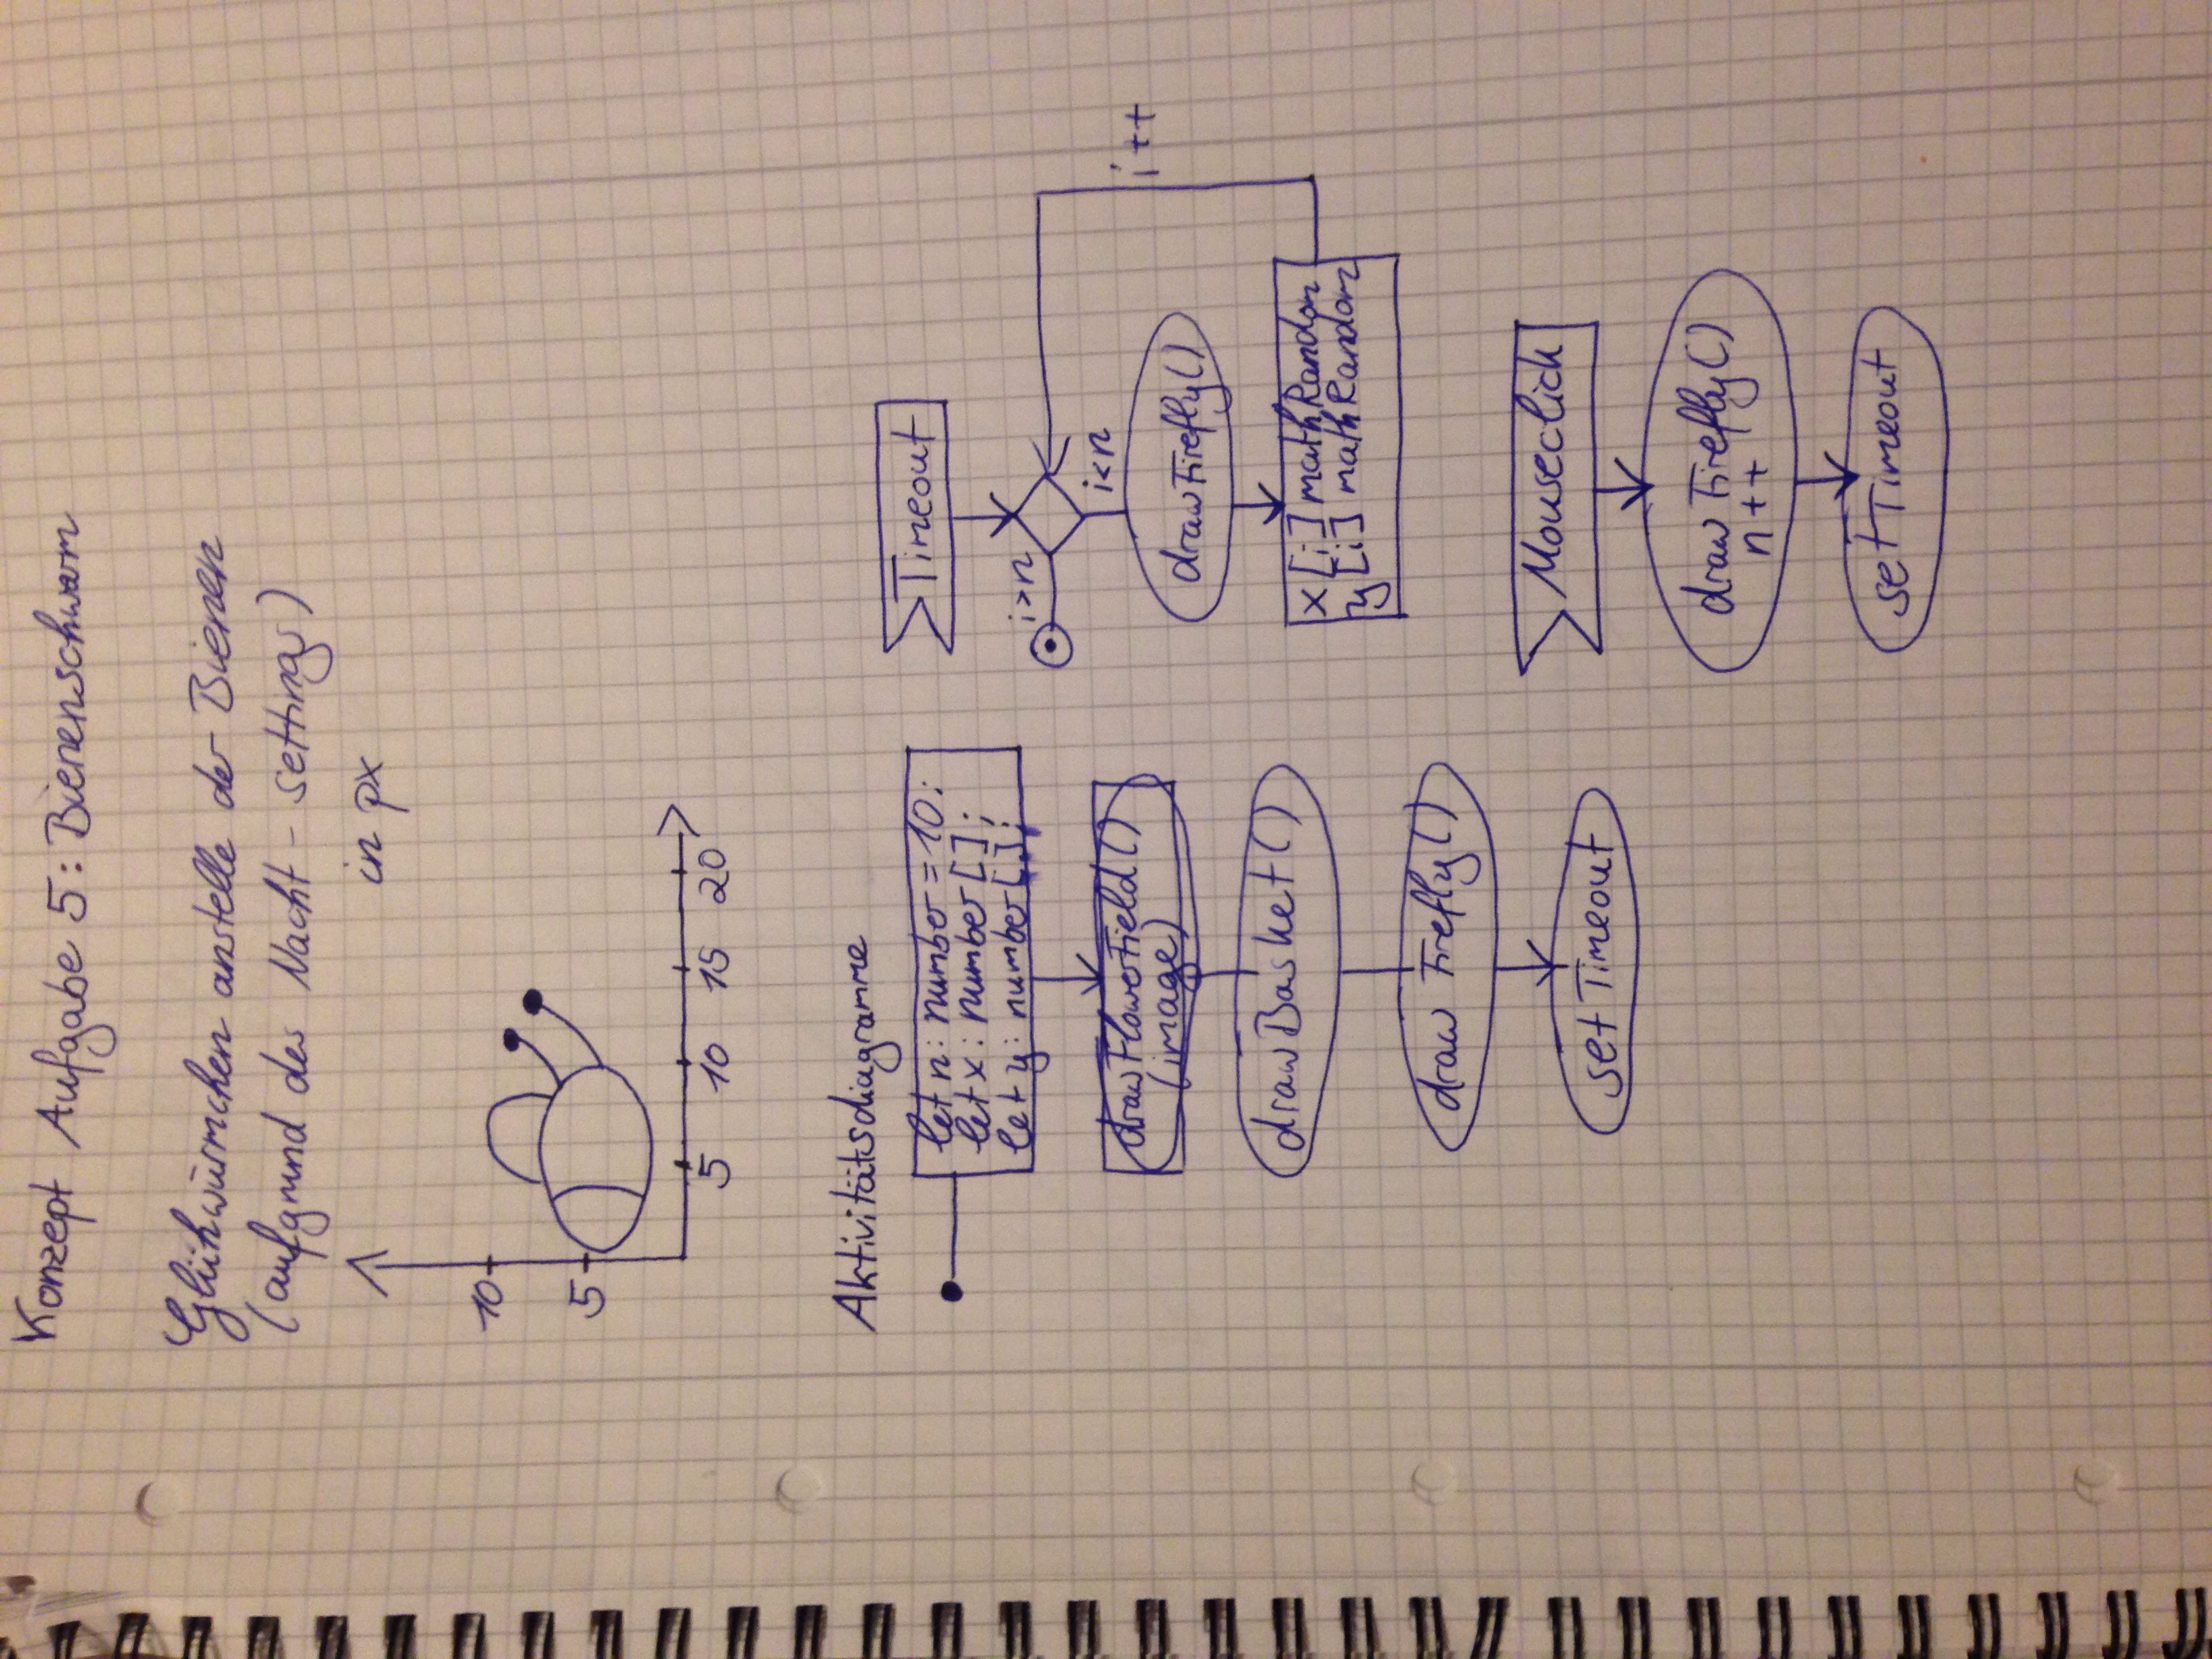 Konzept Aufgabe 5: Bienenschwarm
Glühwürmchen anstelle der Bienen
(aufgrund des Nacht-settings)
in px
10
5
5 10 15 20
Aktivitätsdiagramme
let n: number = 10;
let x: number[];
let y: number[];
drawFlowerField()
(image)
drawBasket()
draw Firefly()
setTimeout
Timeout
i>n
i<n
i++
drawFirefly()
x[i] mathRandom
y[i] mathRandom
Mouseclick
draw Firefly()
n++
setTimeout